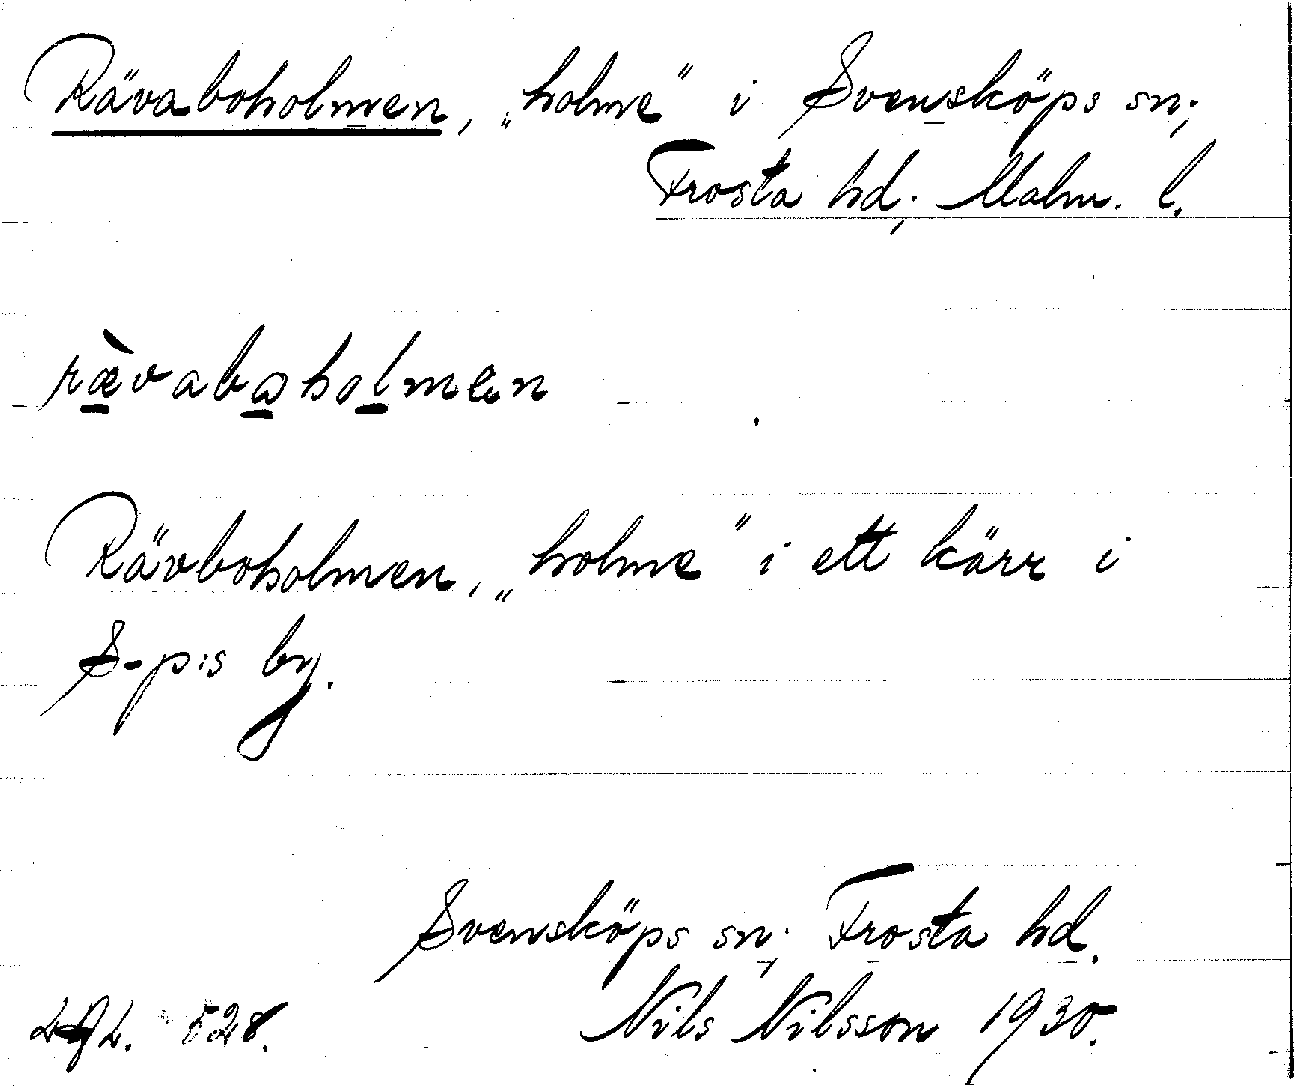 Rävaboholmen, „holme” i Svensköps sn;
Frosta hd; Malm. l.
ræ̀vabⱺholmen
Rävboholmen, „holme” i ett kärr i
S-p:s by.
Svensköps sn; Frosta hd.
528. Nils Nilsson 1930.